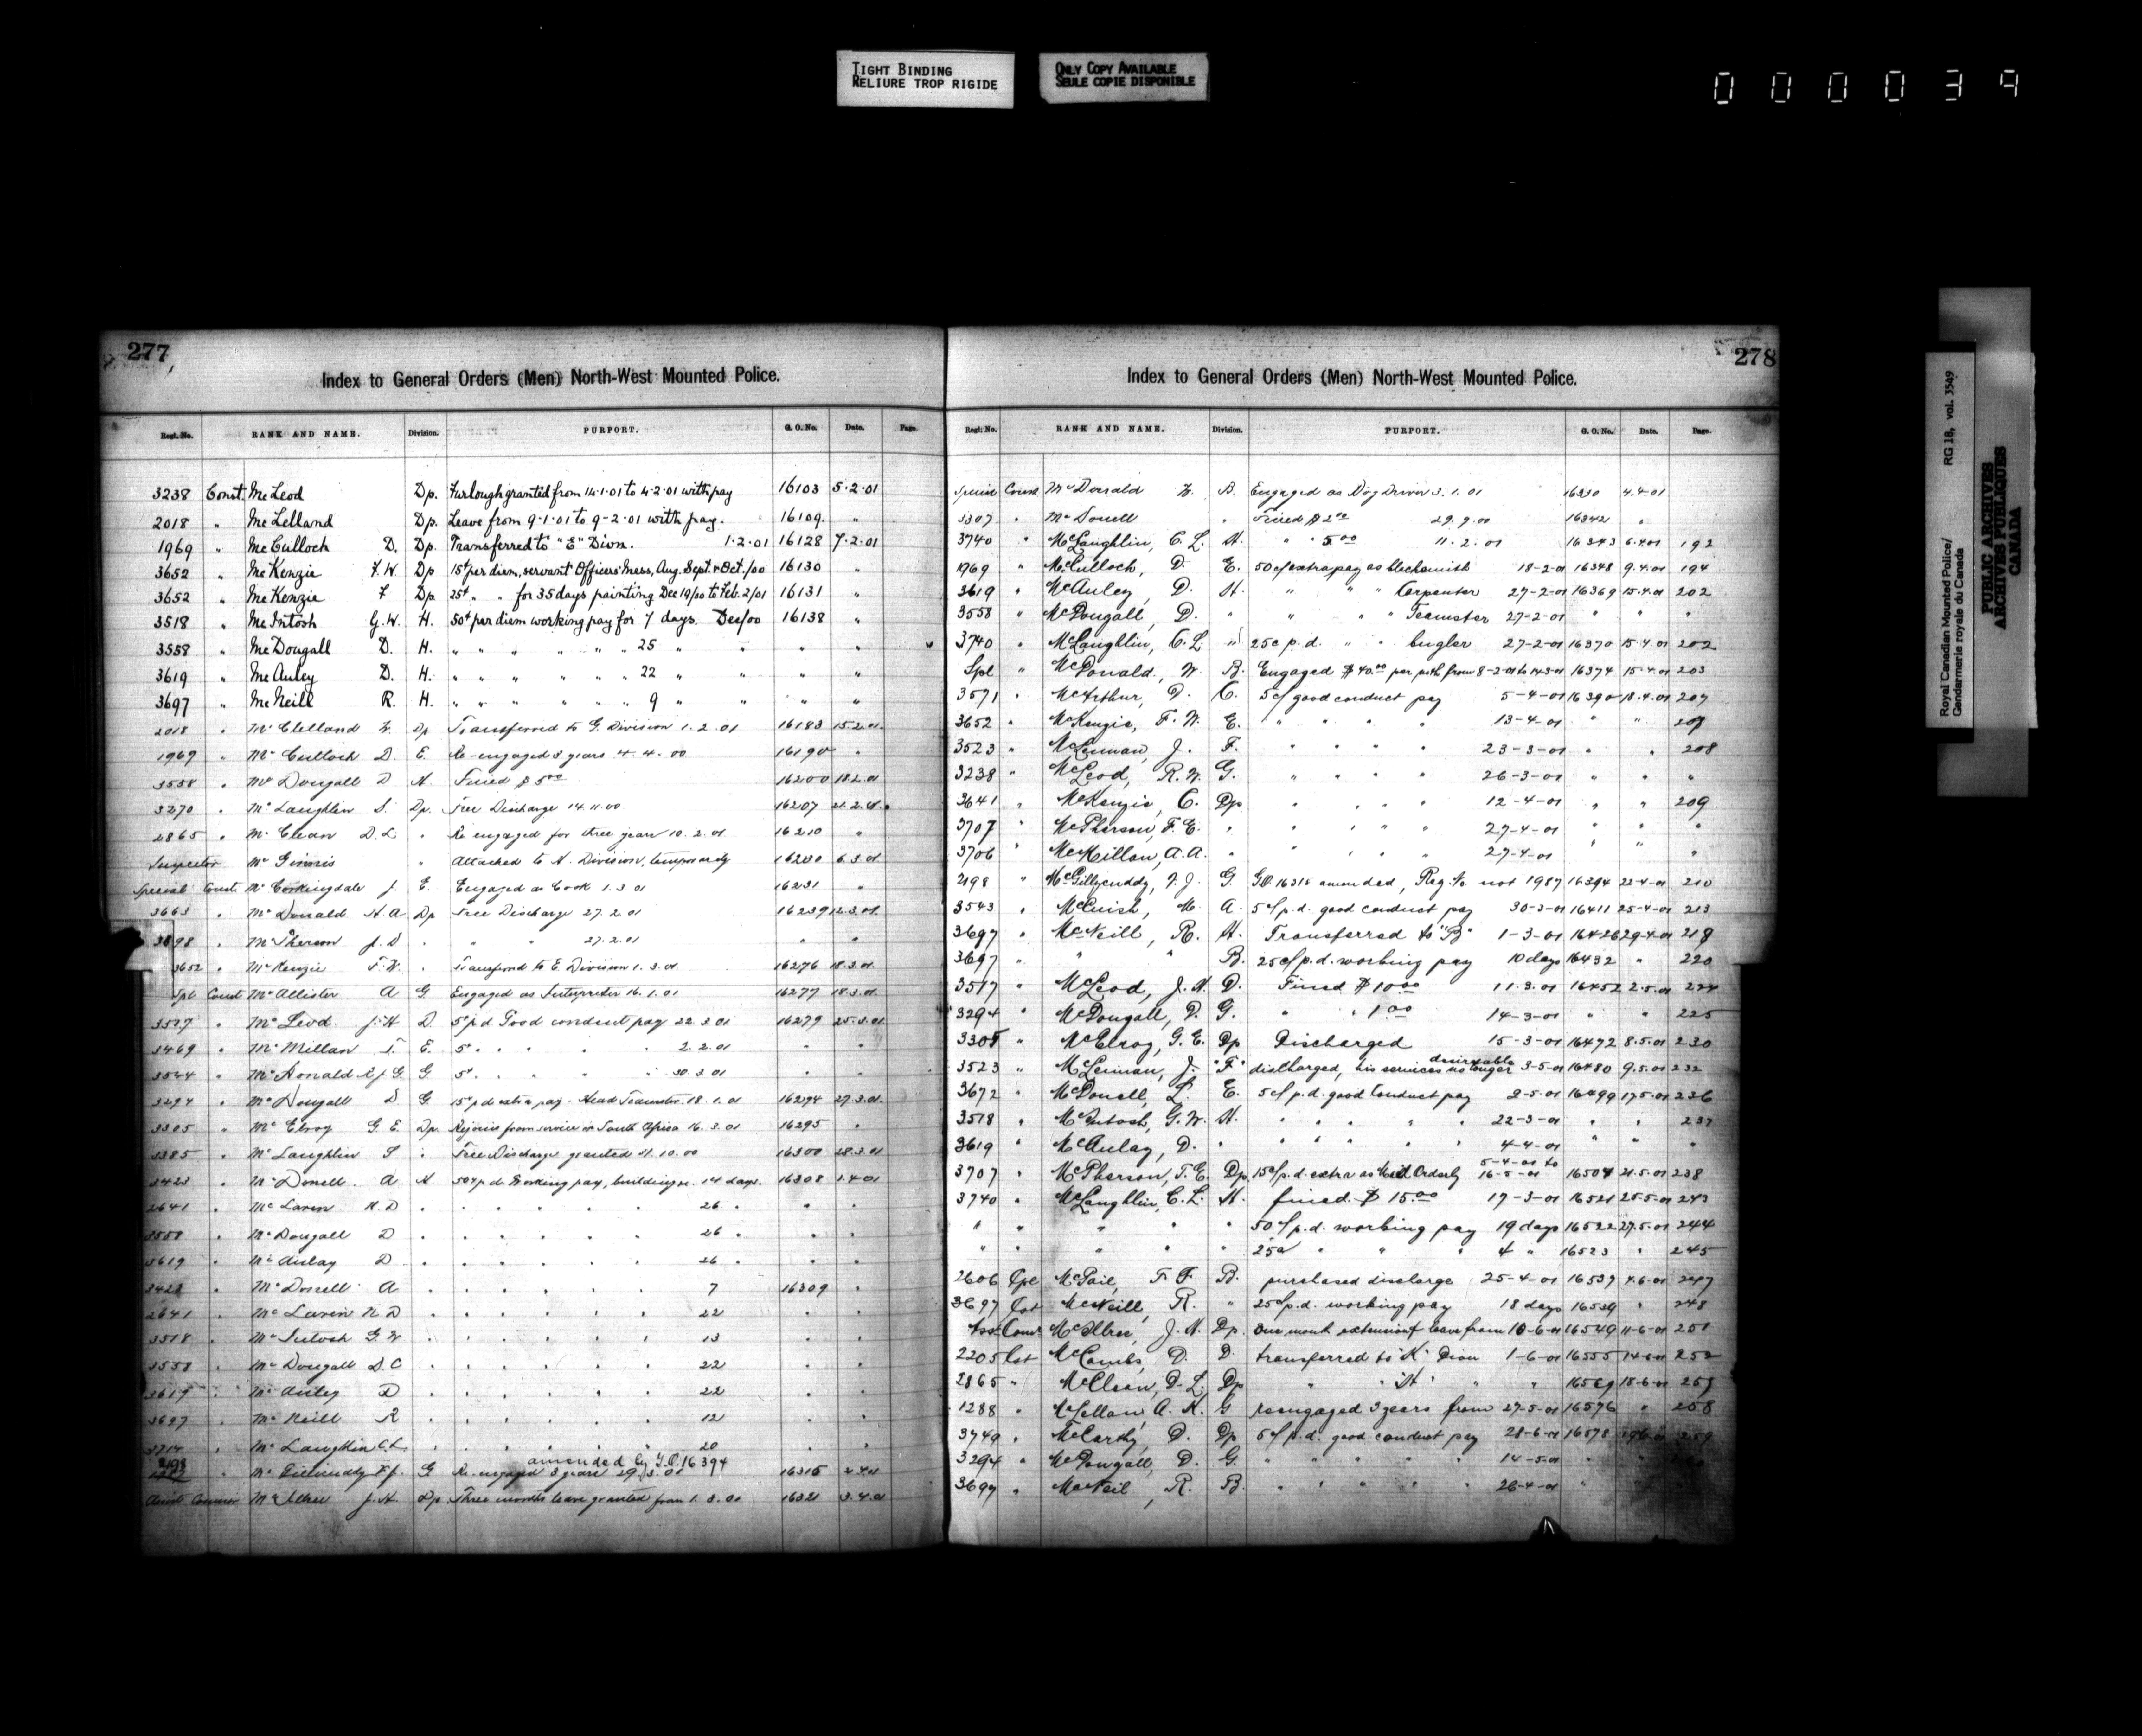 TIGHT BINDING
RELIURE TROP RIGIDE
ONLY COPY AVAILABLE
SEULE COPIE DISPONIBLE
000039
277
Index to General Orders (Men) North-West Mounted Police.
Regl. No. RANK AND NAME. Division. PURPORT. G. O. No. Date. Page.
3238 Const. McLeod Dp. Furlough granted from 14.1.01 to 4.2.01 with pay 16103 5.2.01
2018 " McLelland Dp. Leave from 9-1-01 to 9-2-01 with pay. 16109 "
1969 " McCulloch D. Dp. Transferred to "E" Divn. 1.2.01 16128 7.2.01
3652 " McKenzie F.W. Dp 15¢ per diem, servant Officers' Mess, Aug. Sept. & Oct./00 16130 "
3652 " McKenzie F Dp. 25¢ " " for 35 days painting Dec 19/00 to Feb. 2/01 16131 "
3518 " McIntosh G.W. H. 50¢ per diem working pay for 7 days. Dec/00 16138 "
3558 " McDougall D. H. " " " " " " 25 " " " "
3619 " McAuley D. H. " " " " " " 22 " " " "
3697 " McNeill R. H. " " " " " " 9 " " " "
2018 " McClelland W. Dp Transferred to G. Division 1.2.01 16183 15.2.01
1969 " McCulloch D. E. Re-engaged 3 years 4.4.00 16190 "
3558 " McDougall D H. Fined $5.00 16200 18.2.01
3270 " McLaughlin S. Dp. Free Discharge 14.11.00 16207 21.2.01
2865 " McClean D.L " Re engaged for three years 10.2.01 16210 "
Inspector McGinnis " Attached to H. Division, temporarily 16230 6.3.01
Special Const McCorkingdale J. E. Engaged as Cook 1.3.01 16231 "
3663 " McDonald H.A Dp Free Discharge 27.2.01 16239 12.3.01
3698 " McPherson J.D " " " 27.2.01 " "
3652 " McKenzie F.W. " Transferred to E Division 1.3.01 16276 18.3.01
Spl Const McAllister A G. Engaged as Interpreter 16.1.01 16277 18.3.01
3517 " McLeod J.H D. 5¢ p d Good conduct pay 22.3.01 16279 25.3.01
3469 " McMillan T. E. 5¢ " " " " 2.2.01 " "
3544 " McDonald R.J.G. G. 5¢ " " " " 30.3.01 " "
3294 " McDougall D G. 15¢ p d extra pay - Head Teamster. 18.1.01 16294 27.3.01
3305 " McElroy G.E. Dp. Rejoins from service in South Africa 16.3.01 16295 "
3385 " McLaughlin S " Free Discharge granted 31.10.00 16300 28.3.01
3423 " McDonell A H 50¢ p d Working pay, building &c. 14 days. 16308 1.4.01
2641 " McLaren N.D " " " " " 26 " " "
3558 " McDougall D " " " " " 26 " " "
3619 " McAulay D " " " " " 26 " " "
3423 " McDonell A " " " " " 7 16309 "
2641 " McLaren N D " " " " " 22 " "
3518 " McIntosh G.W " " " " " 13 " "
3558 " McDougall D.C " " " " " 22 " "
3619 " McAuley D " " " " " 22 " "
3697 " McNeill R " " " " " 12 " "
3714 " McLaughlin C.L. " " " " " 20 " "
amended by G.O. 16394
2198 " McGillicuddy F.J. G Re-engaged 3 years 29.3.01 16315 2.4.01
Assist Commr McIllree J.H. Dp. Three months leave granted from 1.3.00 16321 3.4.01
278
Index to General Orders (Men) North-West Mounted Police.
Regl. No. RANK AND NAME. Division. PURPORT. G. O. No. Date. Page.
Special Const McDonald W. B. Engaged as Dog Driver 3.1.01 16330 4.4.01
3307 " McDonell " Fined $2.00 29.9.00 16342 "
3740 " McLaughlin, C.L. H. " " 5.00 11.2.01 16343 6.4.01 192
1969 " McCulloch, D. E. 50¢ extra pay as blacksmith 18-2-01 16348 9.4.01 194
3619 " McAuley, D. H. " " " Carpenter 27-2-01 16369 15.4.01 202
3558 " McDougall, D. " " " " Teamster 27-2-01 " " "
3740 " McLaughlin, C.L. " 25c p.d. " " bugler 27-2-01 16370 15.4.01 202
Spl " McDonald, W. B. Engaged $40.00 per mth from 8-2-01 to 14-3-01 16374 15-4-01 203
3571 " McArthur, D. C. 5¢ good conduct pay 5-4-01 16390 18.4.01 207
3652 " McKenzie, F.W. E. " " " " 13-4-01 " " 207
3523 " McLennan, J. F. " " " " 23-3-01 " " 208
3238 " McLeod, R.W. G. " " " " 26-3-01 " " "
3641 " McKenzie, C. Dp " " " " 12-4-01 " " 209
3707 " McPherson, F.E. " " " " " 27-4-01 " " "
3706 " McMillan, A.A. " " " " " 27-4-01 " " "
2198 " McGillycuddy, F.J. G. G.O. 16315 amended, Reg. No not 1987 16394 22-4-01 210
3543 " McCuish, M. A. 5¢ p.d. good conduct pay 30-3-01 16411 25-4-01 213
3697 " McNeill, R. H. Transferred to "B" 1-3-01 16426 29-4-01 218
3697 " " " B. 25¢ p.d. working pay 10 days 16432 " 220
3517 " McLeod, J.H. D. Fined $10.00 11.3.01 16452 2.5.01 224
3294 " McDougall, D. G. " " 1.00 14-3-01 " " 225
3305 " McElroy, G.E. Dp Discharged 15-3-01 16472 8.5.01 230
3523 " McLennan, J. "F" discharged, his services no longer desireable 3-5-01 16480 9.5.01 232
3672 " McDonell, L. E. 5¢ p.d. good conduct pay 2-5-01 16499 17.5.01 236
3518 " McIntosh, G.W. H. " " " " 22-3-01 " " 237
3619 " McAulay, D. " " " " " 4-4-01 " " "
3707 " McPherson, F.E. Dp 15¢ p.d. extra as Hosp'l Orderly 5-4-01 to 16-5-01 16504 21.5.01 238
3740 " McLaughlin, C.L. H. fined $15.00 17-3-01 16521 25.5.01 243
" " " " 50¢ p.d. working pay 19 days 16522 27.5.01 244
" " " " " 25¢ " " " 4 " 16523 " 245
2606 Cpl McPhail, F F. B. purchased discharge 25-4-01 16537 4.6.01 247
3697 Cst McNeill, R. " 25¢ p.d. working pay 18 days 16539 " 248
Asst Comr McIllree, J.H. Dp. One month extension of leave from 10-6-01 16549 11-6-01 251
2205 Cst McCombs, D. D. transferred to "K" Divn 1-6-01 16555 14-6-01 252
2865 " McClean, D.L. Dp " "H" " " 16569 18-6-01 257
1288 " McLellan, A.H. G reengaged 3 years from 27-5-01 16576 " 258
3749 " McCarthy, D. Dp 5¢ p.d. good conduct pay 28-6-01 16578 259
3294 " McDougall, D. G. " " " " 14-5-01 "
3697 " McNeil, R. B. " " " " 26-4-01 "
Royal Canadian Mounted Police/
Gendarmerie royale du Canada
RG 18, vol. 3549
PUBLIC ARCHIVES
ARCHIVES PUBLIQUES
CANADA